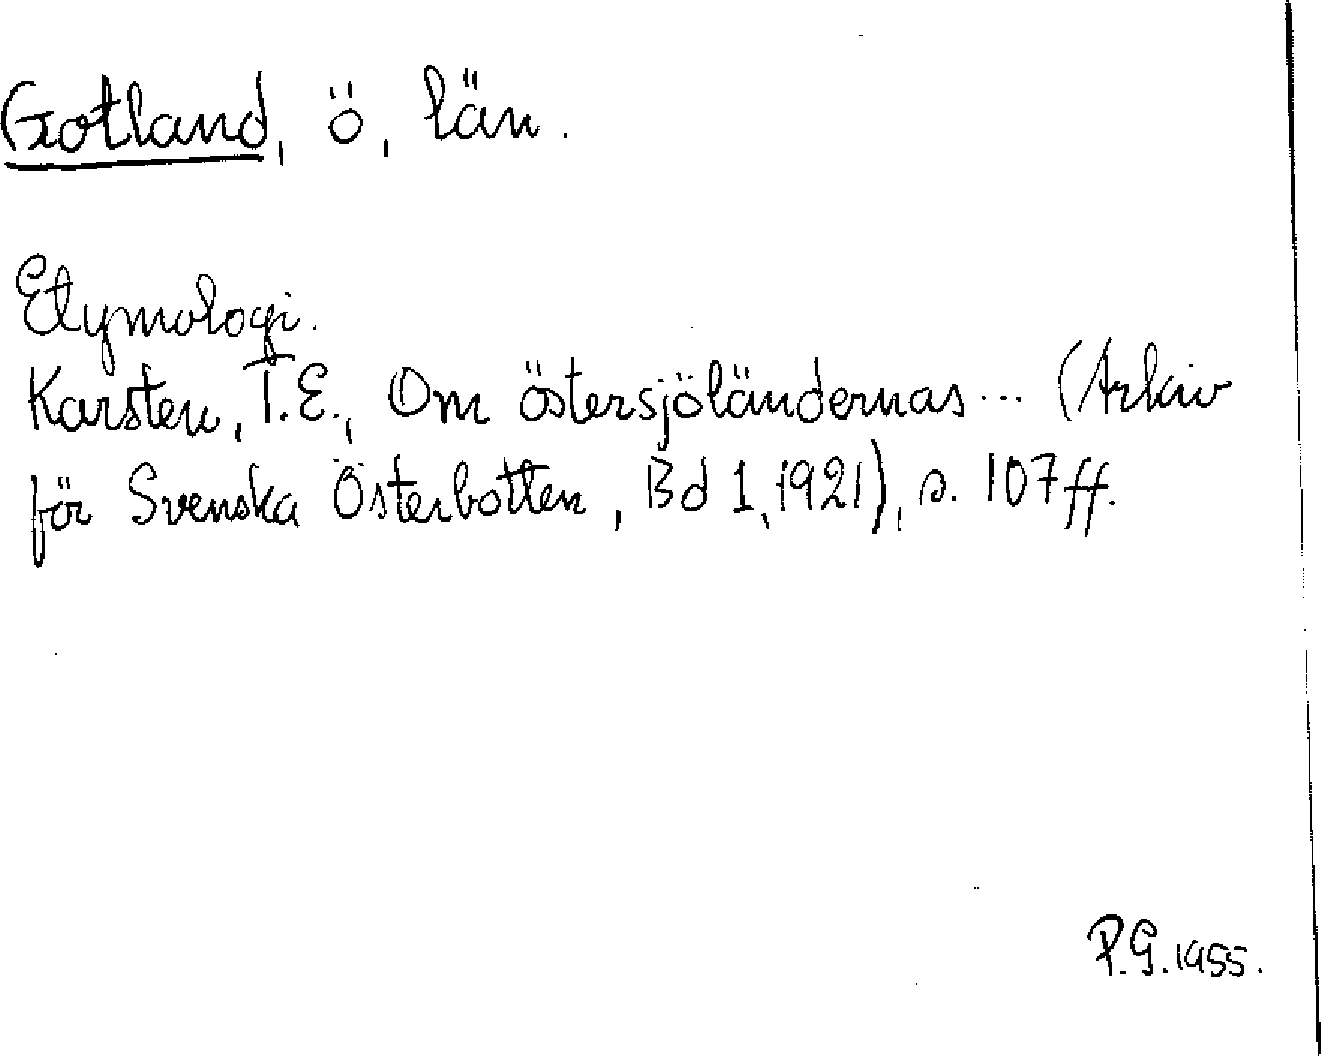 Gotland, ö, län.
Etymologi.
Karsten, T.E., Om östersjöländernas ... (Arkiv
för Svenska Österbotten, Bd 1, 1921), s. 107 ff.
P.G. 1955.